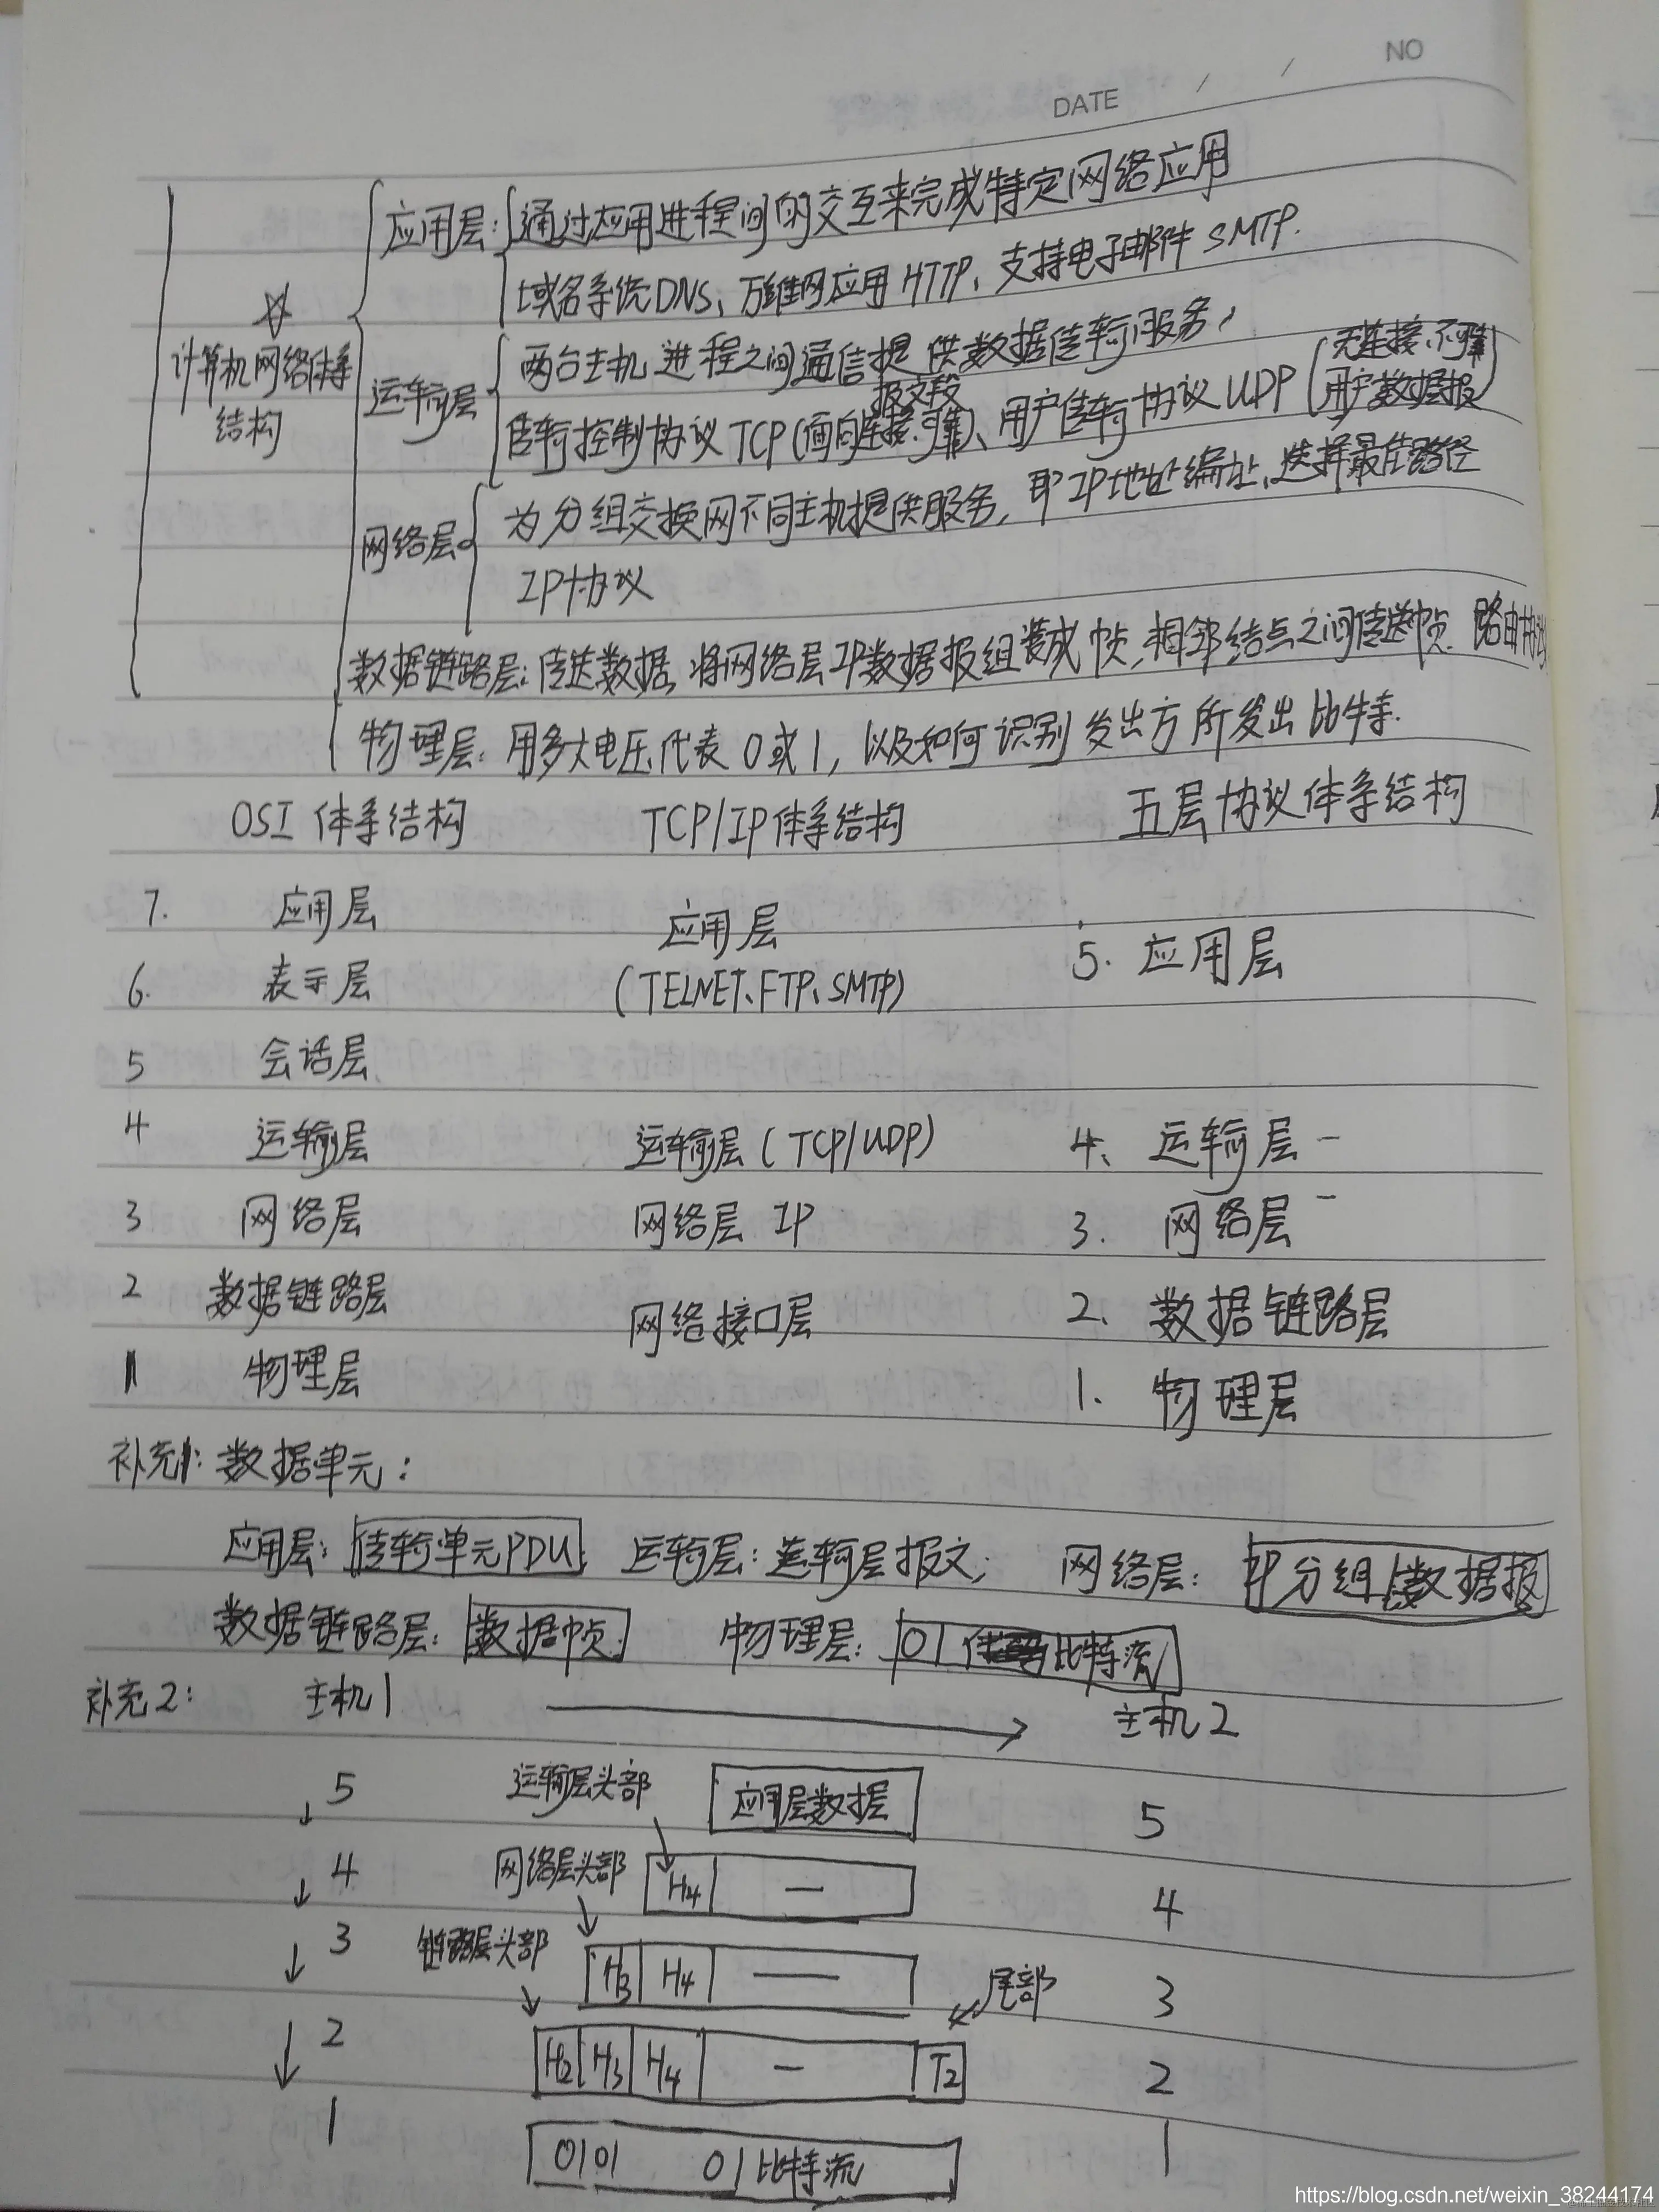 NO
DATE / /
应用层: 通过应用进程间的交互来完成特定网络应用
域名系统DNS、万维网应用HTTP、支持电子邮件SMTP.
☆
计算机网络体系
结构
运输层 两台主机进程之间通信提供数据传输服务,
报文段
无连接、不可靠
传输控制协议TCP(面向连接、可靠)、用户传输协议UDP(用户数据报)
网络层 为分组交换网不同主机提供服务, 即IP地址编址、选择最佳路径
IP协议
数据链路层: 传送数据, 将网络层IP数据报组装成帧, 相邻结点之间传送帧. 路由协议
物理层: 用多大电压代表0或1, 以及如何识别发出方所发出比特.
OSI体系结构 TCP/IP体系结构 五层协议体系结构
7. 应用层 应用层 5. 应用层
6. 表示层 (TELNET、FTP、SMTP)
5 会话层
4 运输层 运输层(TCP/UDP) 4、运输层 -
3 网络层 网络层 IP 3. 网络层 -
2 数据链路层 网络接口层 2、数据链路层
1 物理层 1. 物理层
补充1: 数据单元:
应用层: 传输单元PDU; 运输层: 运输层报文; 网络层: IP分组 数据报
数据链路层: 数据帧. 物理层: 01 比特流
补充2: 主机1 → 主机2
5 运输层头部 应用层数据 5
4 网络层头部 H4 — 4
3 链路层头部 H3 H4 — 尾部 3
2 H2 H3 H4 — T2 2
1 0101 01比特流 1
https://blog.csdn.net/weixin_38244174